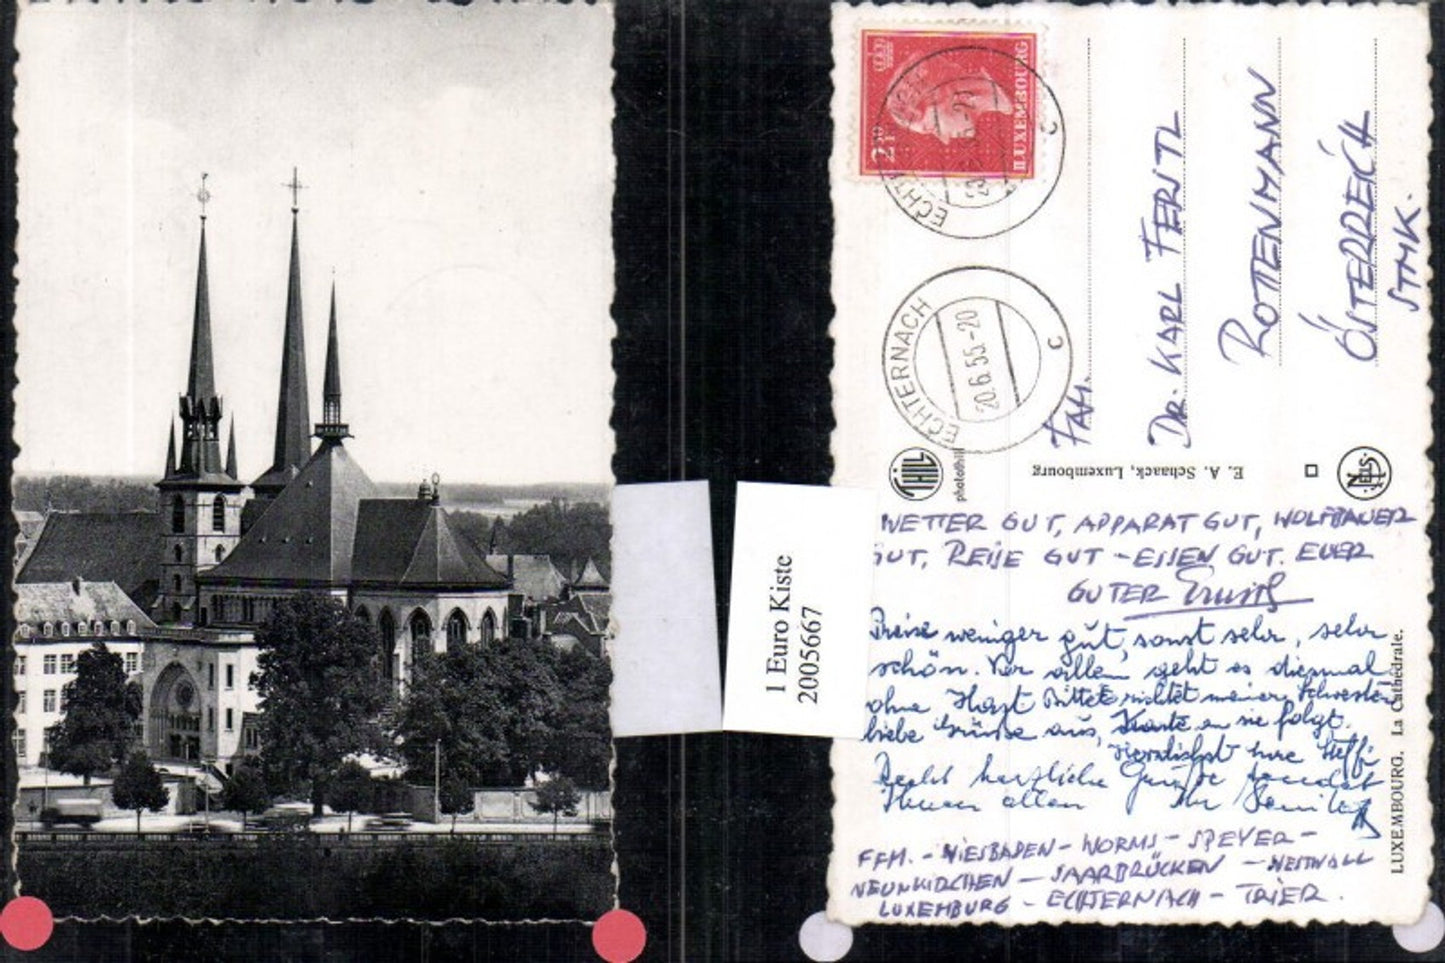 1 Euro Kiste
2005667
2 F 50
LUXEMBOURG
ECHTERNACH
20.6.55.-20
C
ECHTERNACH
20.6.55.-20
C
FAM.
DR. KARL FERSTL
ROTTENMANN
ÖSTERREICH
STMK.
THILL
photothill
E. A. Schaack, Luxembourg
NELS
WETTER GUT, APPARAT GUT, WOLFBAUER
GUT, REISE GUT – ESSEN GUT. EUER
GUTER
Preise weniger gut, sonst sehr, sehr
schön. Vor allem geht es diesmal
ohne Hast. Bitte richtet meiner Schwester
liebe Grüsse aus, Karte an sie folgt.
Herzlichst Eure Steffi
Recht herzliche Grüsse sendet
Ihnen allen Ihr
FFM. – WIESBADEN – WORMS – SPEYER –
NEUNKIRCHEN – SAARBRÜCKEN – WESTWALL
LUXEMBURG – ECHTERNACH – TRIER.
LUXEMBOURG. La Cathédrale.